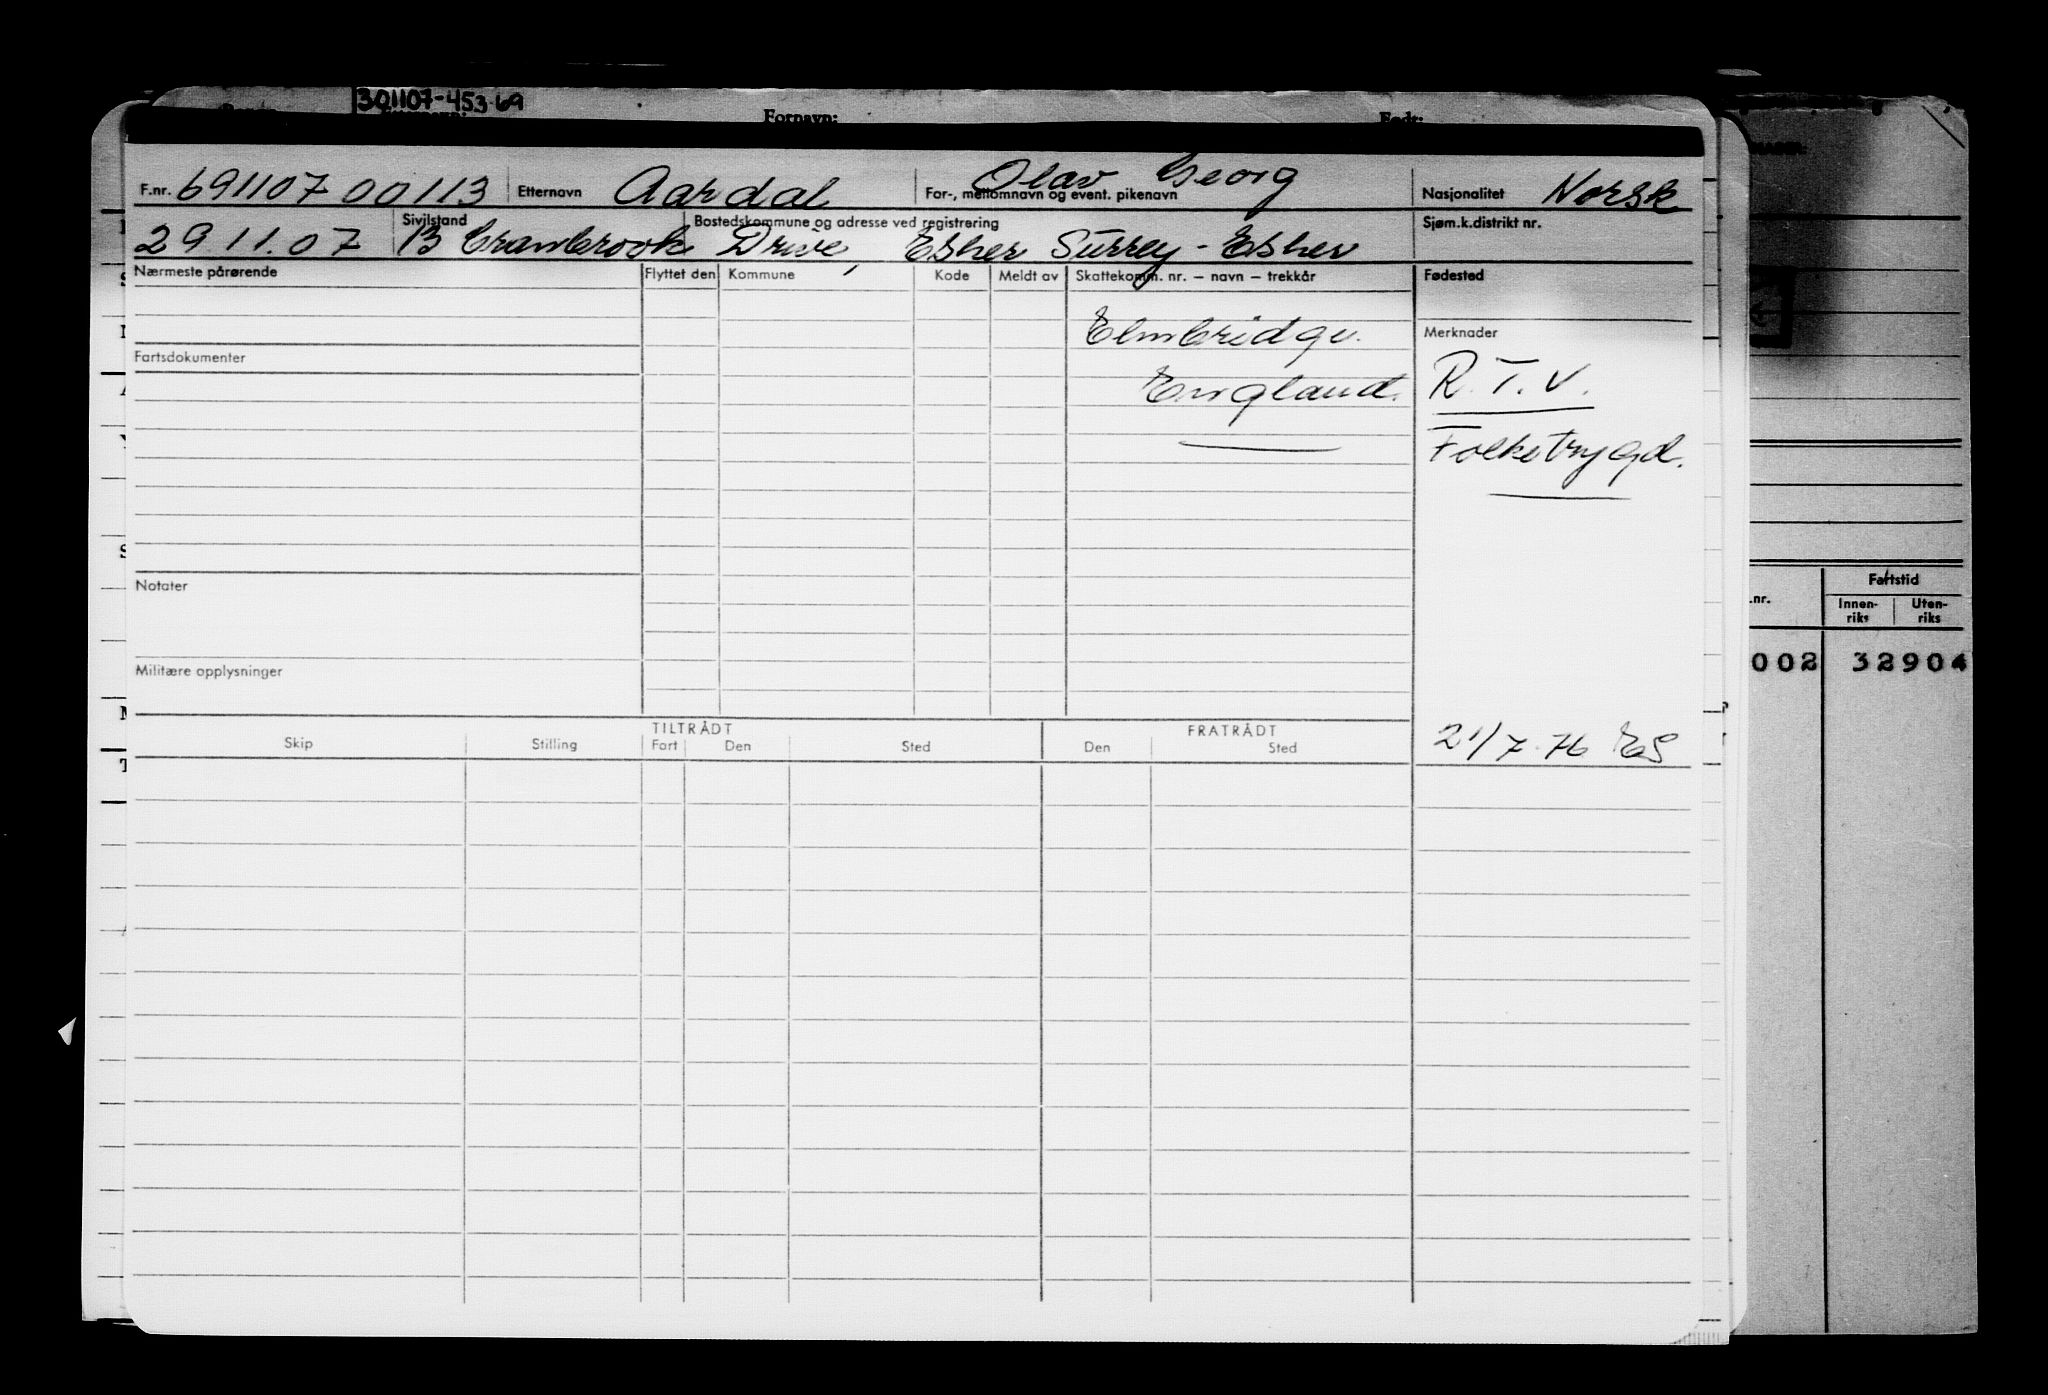 301107-453-69
Fornavn: Født:
F.nr. 691107 00113 Etternavn Aardal For-, mellomnavn og event. pikenavn Olav Georg Nasjonalitet Norsk
Sivilstand Bostedskommune og adresse ved registrering Sjøm.k.distrikt nr.
29.11.07 13 Cranbrook Drive, Esher Surrey - Esher
Nærmeste pårørende Flyttet den Kommune Kode Meldt av Skattekomm. nr. – navn – trekkår Fødested
Elmbridge.
England.
Merknader
R.T.V.
Folketrygd.
Fartsdokumenter
Notater
Militære opplysninger
21/7.76
TILTRÅDT FRATRÅDT
Skip Stilling Fart Den Sted Den Sted
.nr. Fartstid
Innen-riks Uten-riks
002 32904